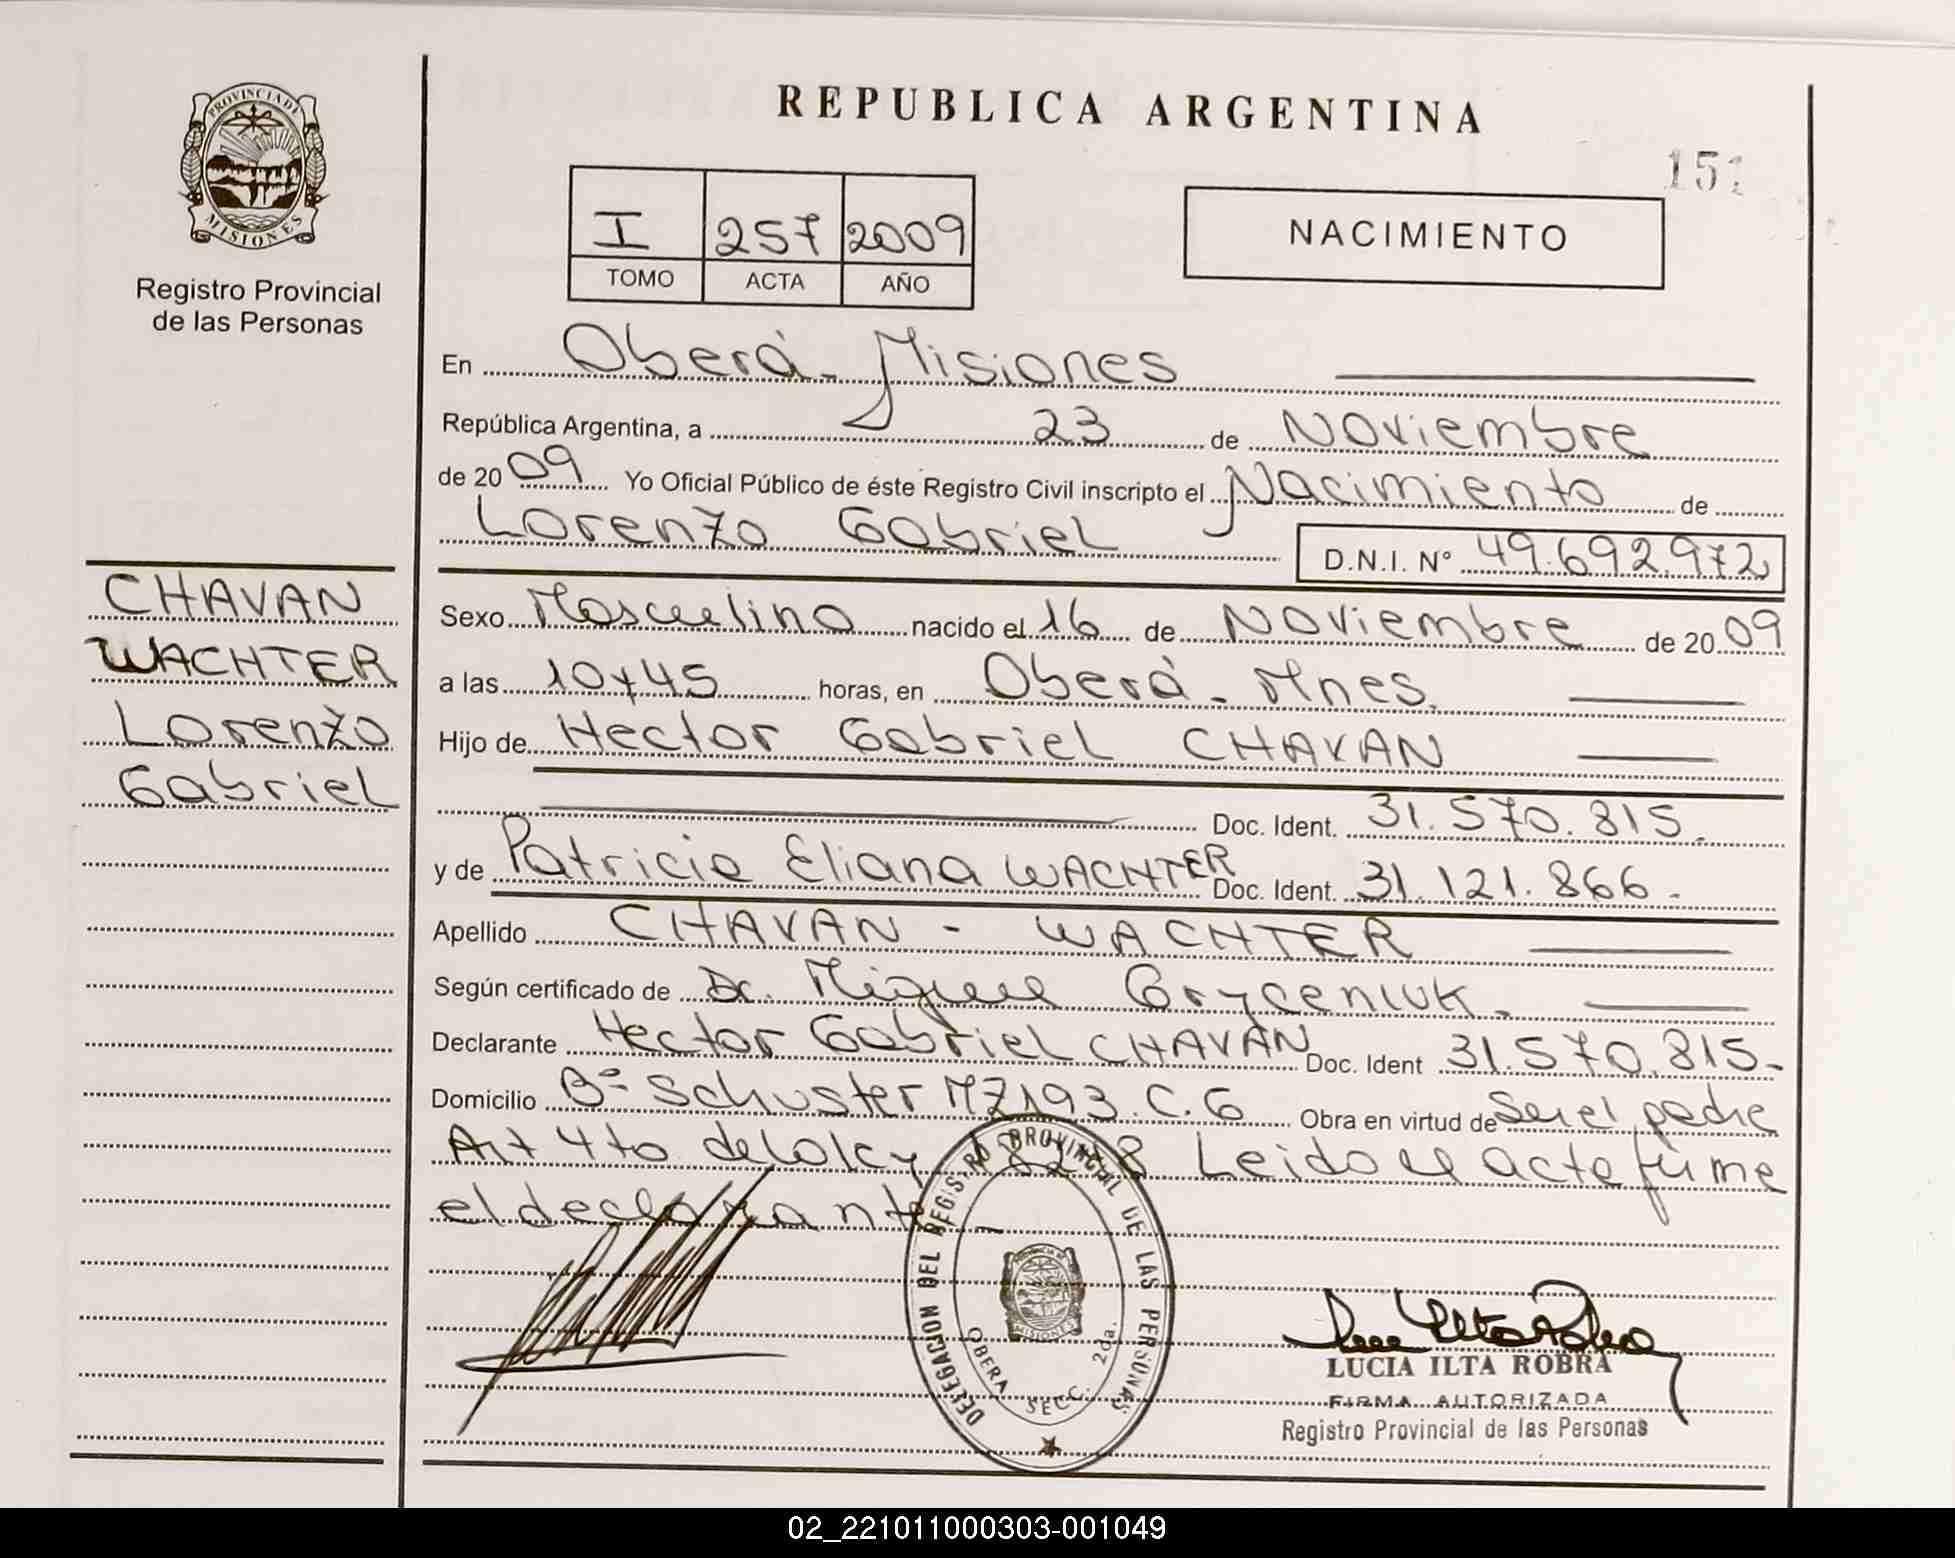 PROVINCIA DE
MISIONES
Registro Provincial
de las Personas
CHAVAN
WACHTER
Lorenzo
Gabriel
REPUBLICA ARGENTINA
151
I 257 2009
TOMO ACTA AÑO
NACIMIENTO
En Oberá - Misiones
República Argentina, a 23 de Noviembre
de 2009 Yo Oficial Público de éste Registro Civil inscripto el Nacimiento de
Lorenzo Gabriel D.N.I. Nº 49.692.972
Sexo Masculino nacido el 16 de Noviembre de 2009
a las 10 y 45 horas, en Oberá - Mnes.
Hijo de Hector Gabriel CHAVAN
Doc. Ident. 31.570.815.
y de Patricia Eliana WACHTER Doc. Ident. 31.121.866.
Apellido CHAVAN - WACHTER
Según certificado de Dr. Miguel Gryceniuk.
Declarante Hector Gabriel CHAVAN Doc. Ident 31.570.815-
Domicilio Bº Schuster MZ 193 C.6 Obra en virtud de Ser el padre
Art 4to de la ley 18248 Leido el acta firma
el declarante -
DELEGACION DEL REGISTRO PROVINCIAL DE LAS PERSONAS
MISIONES
OBERA SECC. 2da.
LUCIA ILTA ROBRA
FIRMA AUTORIZADA
Registro Provincial de las Personas
02_221011000303-001049